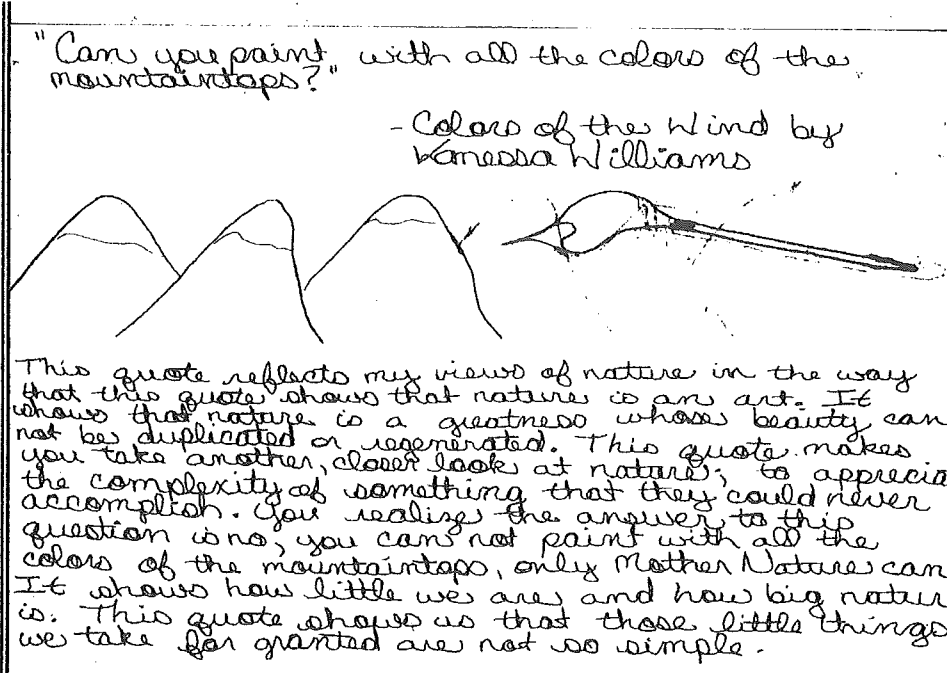 "Can you paint with all the colors of the
mountaintops?"
- Colors of the Wind by
Vanessa Williams
This quote reflects my views of nature in the way
that this quote shows that nature is an art. It
shows that nature is a greatness whose beauty can
not be duplicated or regenerated. This quote makes
you take another, closer look at nature; to apprecia
the complexity of something that they could never
accomplish. You realize the answer to this
question is no; you can not paint with all the
colors of the mountaintops, only Mother Nature can
It shows how little we are and how big natur
is. This quote shows us that those little things
we take for granted are not so simple.